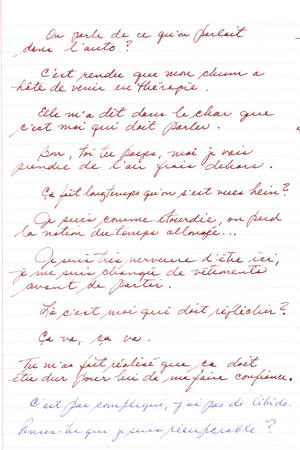 On parle de ce qu'on parlait
dans l'auto ?
C'est rendu que mon chum a
hâte de venir en thérapie.
Elle m'a dit dans le char que
c'est moi qui doit parler.
Bon, toi tu payes, moi je vais
prendre de l'air frais dehors.
Ça fait longtemps qu'on s'est vues hein ?
Je suis comme étourdie, on perd
la notion du temps allongé...
Je suis très nerveuse d'être ici,
je me suis changée de vêtements
avant de partir.
Là c'est moi qui doit réfléchir ?
Ça va, ça va.
Tu m'as fait réalisé que ça doit
être dur pour lui de me faire confiance.
C'est pas compliqué, j'ai pas de libido.
Penses-tu que je suis récupérable ?